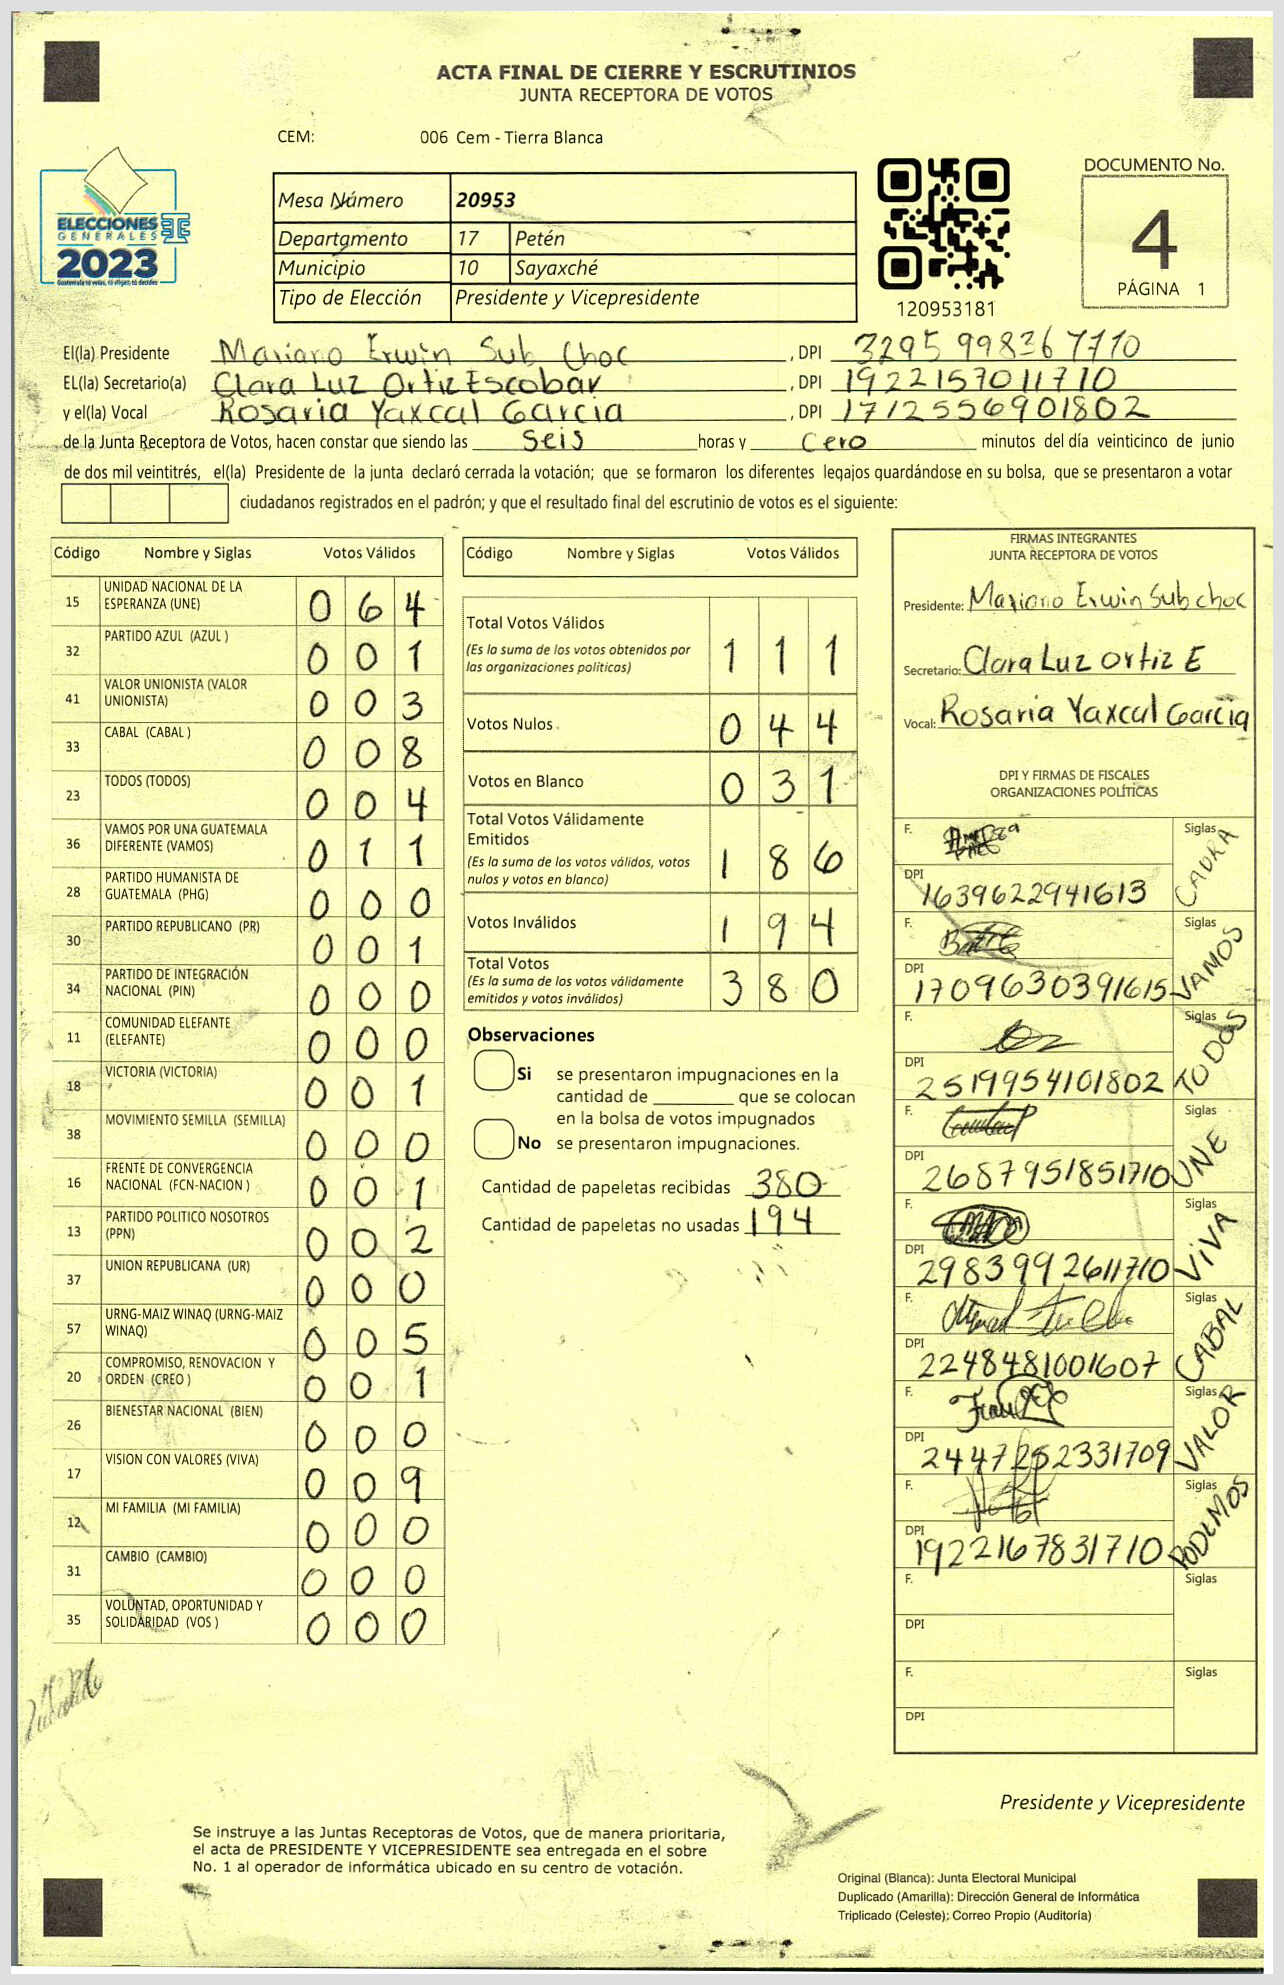 ACTA FINAL DE CIERRE Y ESCRUTINIOS
JUNTA RECEPTORA DE VOTOS
CEM: 006 Cem - Tierra Blanca
ELECCIONES
GENERALES
2023
Guatemala tú votas, tú eliges, tú decides
Mesa Número 20953
Departamento 17 Petén
Municipio 10 Sayaxché
Tipo de Elección Presidente y Vicepresidente
120953181
DOCUMENTO No.
4
PÁGINA 1
El(la) Presidente Mariano Erwin Sub Choc , DPI 3295 99836 1710
EL(la) Secretario(a) Clara Luz Ortiz Escobar , DPI 1922157011710
y el(la) Vocal Rosaria Yaxcal Garcia , DPI 1712556901802
de la Junta Receptora de Votos, hacen constar que siendo las seis horas y cero minutos del día veinticinco de junio
de dos mil veintitrés, el(la) Presidente de la junta declaró cerrada la votación; que se formaron los diferentes legajos guardándose en su bolsa, que se presentaron a votar
ciudadanos registrados en el padrón; y que el resultado final del escrutinio de votos es el siguiente:
Código Nombre y Siglas Votos Válidos
15 UNIDAD NACIONAL DE LA ESPERANZA (UNE) 0 6 4
32 PARTIDO AZUL (AZUL ) 0 0 1
41 VALOR UNIONISTA (VALOR UNIONISTA) 0 0 3
33 CABAL (CABAL ) 0 0 8
23 TODOS (TODOS) 0 0 4
36 VAMOS POR UNA GUATEMALA DIFERENTE (VAMOS) 0 1 1
28 PARTIDO HUMANISTA DE GUATEMALA (PHG) 0 0 0
30 PARTIDO REPUBLICANO (PR) 0 0 1
34 PARTIDO DE INTEGRACIÓN NACIONAL (PIN) 0 0 0
11 COMUNIDAD ELEFANTE (ELEFANTE) 0 0 0
18 VICTORIA (VICTORIA) 0 0 1
38 MOVIMIENTO SEMILLA (SEMILLA) 0 0 0
16 FRENTE DE CONVERGENCIA NACIONAL (FCN-NACION ) 0 0 1
13 PARTIDO POLITICO NOSOTROS (PPN) 0 0 2
37 UNION REPUBLICANA (UR) 0 0 0
57 URNG-MAIZ WINAQ (URNG-MAIZ WINAQ) 0 0 5
20 COMPROMISO, RENOVACION Y ORDEN (CREO ) 0 0 1
26 BIENESTAR NACIONAL (BIEN) 0 0 0
17 VISION CON VALORES (VIVA) 0 0 9
12 MI FAMILIA (MI FAMILIA) 0 0 0
31 CAMBIO (CAMBIO) 0 0 0
35 VOLUNTAD, OPORTUNIDAD Y SOLIDARIDAD (VOS ) 0 0 0
Código Nombre y Siglas Votos Válidos
Total Votos Válidos
(Es la suma de los votos obtenidos por
las organizaciones políticas) 1 1 1
Votos Nulos 0 4 4
Votos en Blanco 0 3 1
Total Votos Válidamente
Emitidos
(Es la suma de los votos válidos, votos
nulos y votos en blanco) 1 8 6
Votos Inválidos 1 9 4
Total Votos
(Es la suma de los votos válidamente
emitidos y votos inválidos) 3 8 0
Observaciones
Si se presentaron impugnaciones en la
cantidad de ________ que se colocan
en la bolsa de votos impugnados
No se presentaron impugnaciones.
Cantidad de papeletas recibidas 380
Cantidad de papeletas no usadas 194
FIRMAS INTEGRANTES
JUNTA RECEPTORA DE VOTOS
Presidente: Mariano Erwin Sub choc
Secretario: Clara Luz Ortiz E
Vocal: Rosaria Yaxcal Garcia
DPI Y FIRMAS DE FISCALES
ORGANIZACIONES POLÍTICAS
F. Siglas
DPI 1639622941613
F. Siglas VAMOS
DPI 1709630391615
F. Siglas TODOS
DPI 2519954101802
F. Siglas UNE
DPI 2687951851710
F. Siglas VIVA
DPI 2983992611710
F. Siglas CABAL
DPI 2248481001607
F. Siglas VALOR
DPI 2447252331709
F. Siglas PODEMOS
DPI 1922167831710
F. Siglas
DPI
F. Siglas
DPI
Presidente y Vicepresidente
Se instruye a las Juntas Receptoras de Votos, que de manera prioritaria,
el acta de PRESIDENTE Y VICEPRESIDENTE sea entregada en el sobre
No. 1 al operador de informática ubicado en su centro de votación.
Original (Blanca): Junta Electoral Municipal
Duplicado (Amarilla): Dirección General de Informática
Triplicado (Celeste): Correo Propio (Auditoría)